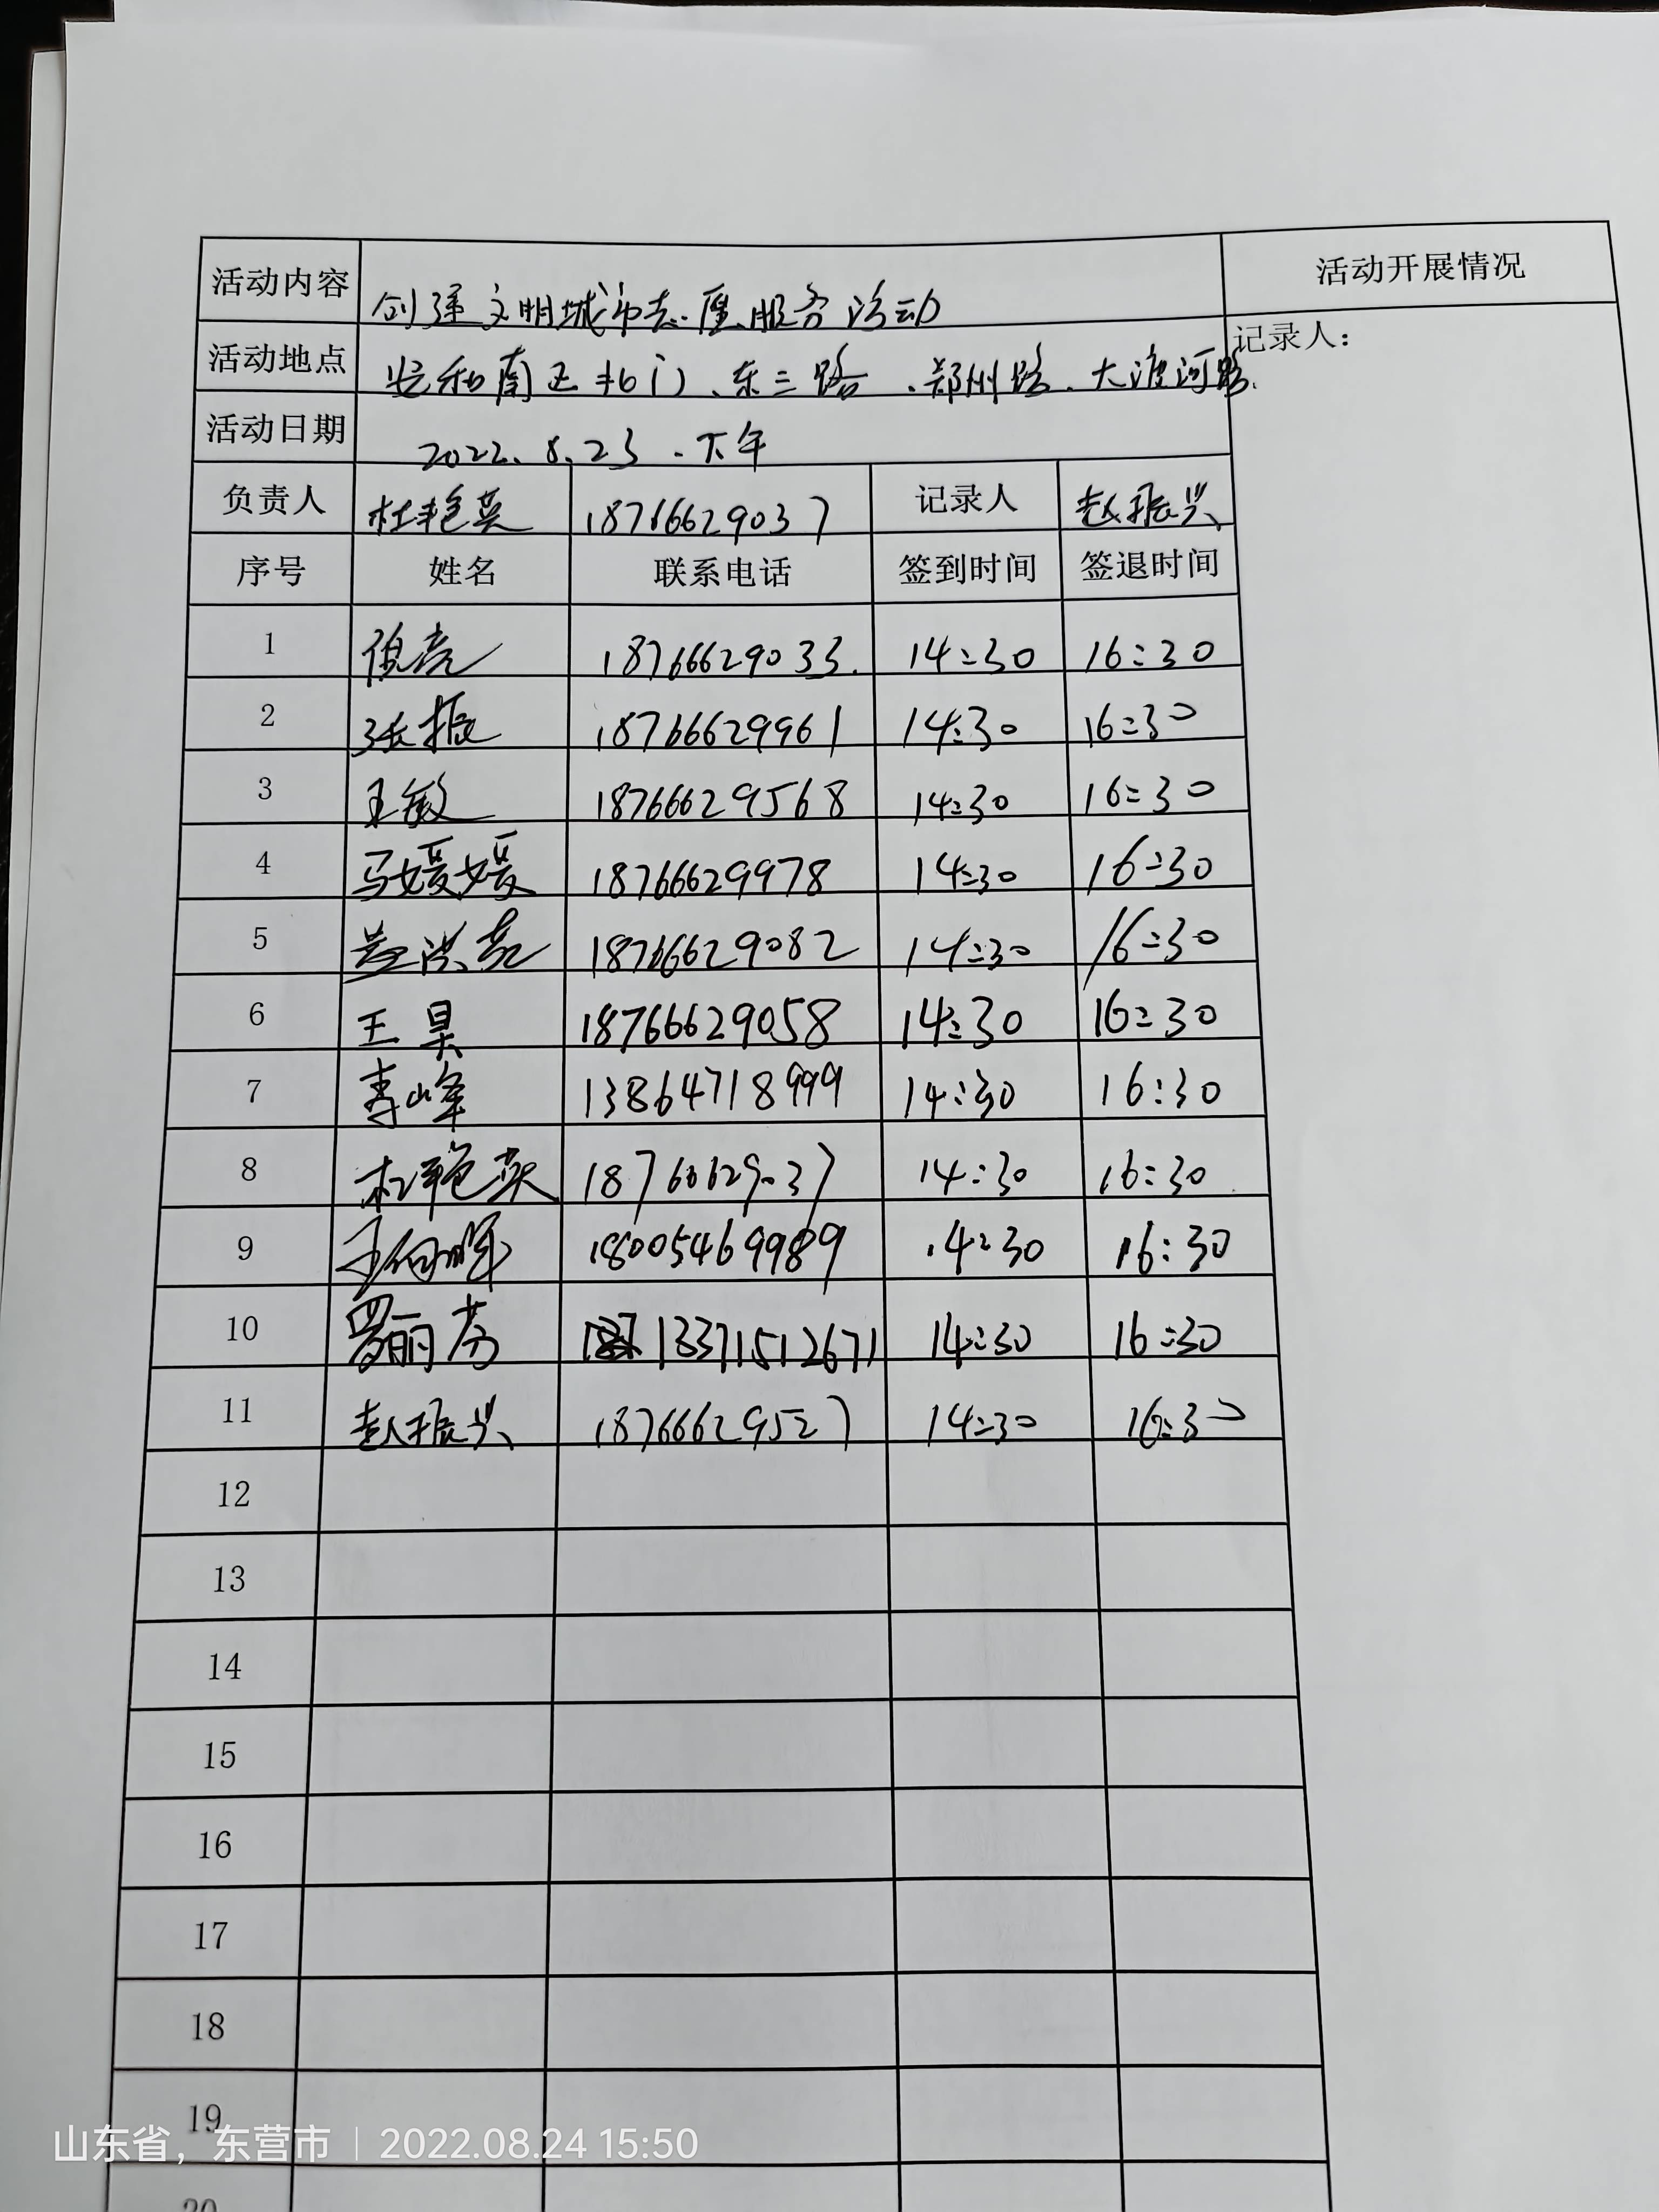 活动内容 创建文明城市志愿服务活动 活动开展情况
活动地点 安和南区北门、东二路、郑州路、大渡河路. 记录人：
活动日期 2022.8.23.下午
负责人 杜艳英 18766629037 记录人 赵振兴
序号 姓名 联系电话 签到时间 签退时间
1 倪亮 18766629033. 14:30 16:30
2 张振 18766629961 14:30 16:30
3 王敏 18766629568 14:30 16:30
4 马媛媛 18766629978 14:30 16:30
5 18766629082 14:30 16:30
6 王昊 18766629058 14:30 16:30
7 李峰 13864718999 14:30 16:30
8 杜艳英 18766629037 14:30 16:30
9 18005469989 14:30 16:30
10 罗丽芬 13371512671 14:30 16:30
11 赵振兴 18766629527 14:30 16:30
12
13
14
15
16
17
18
19
20
山东省，东营市 | 2022.08.24 15:50